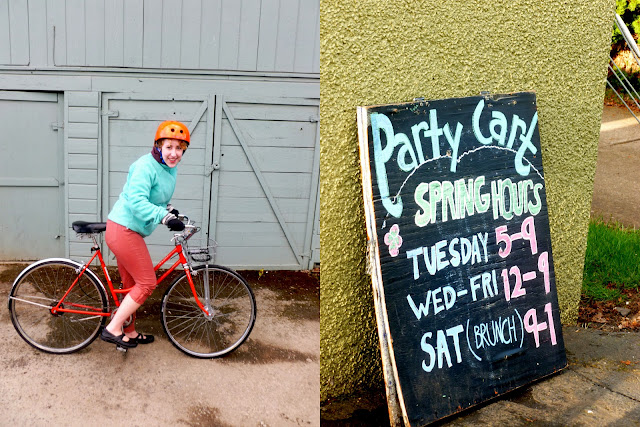 Party Cart
SPRING HOURS
TUESDAY 5-9
WED-FRI 12-9
SAT (BRUNCH) 9-1